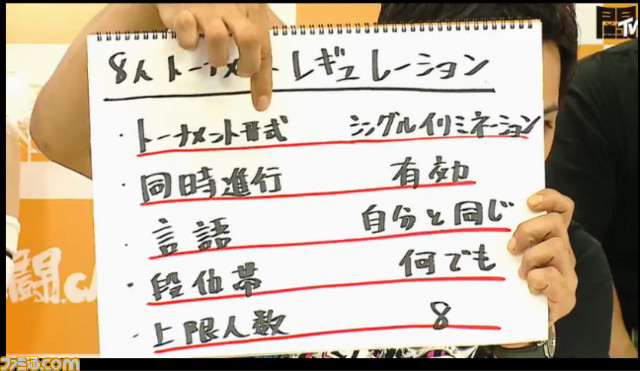 闘TV
8人トーナメントレギュレーション
・トーナメント形式 シングルイリミネーション
・同時進行 有効
・言語 自分と同じ
・段位帯 何でも
・上限人数 8
闘.CA
ファミ通.com